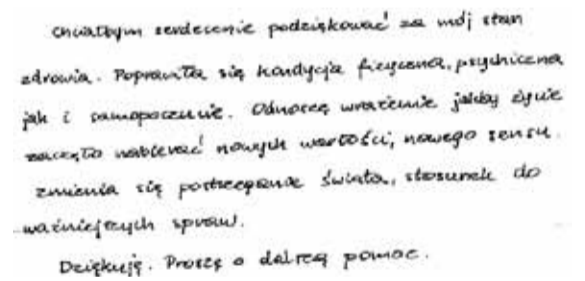 Chciałbym serdecznie podziękować za mój stan
zdrowia. Poprawiła się kondycja fizyczna, psychiczna
jak i samopoczucie. Odnoszę wrażenie jakby życie
zaczęło nabierać nowych wartości, nowego sensu.
zmienia się postrzeganie świata, stosunek do
ważniejszych spraw.
Dziękuję. Proszę o dalszą pomoc.